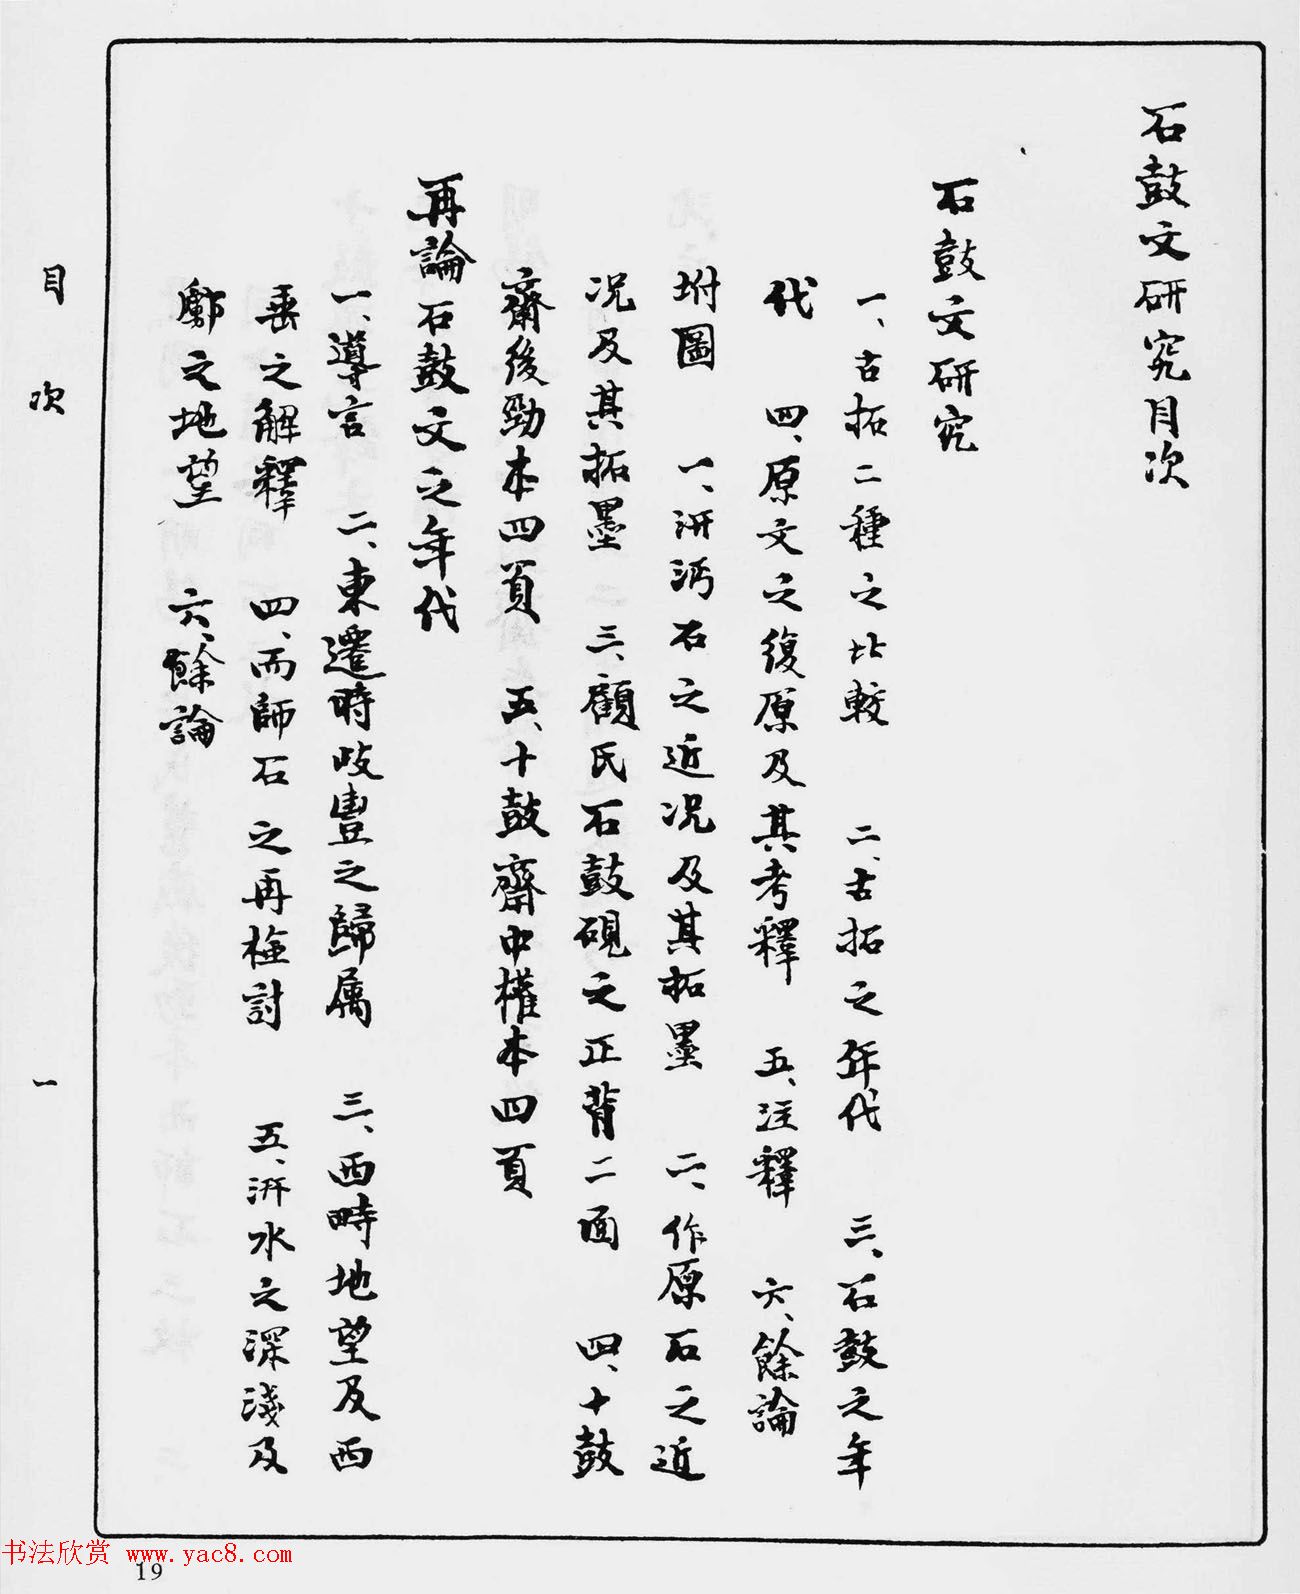 石鼓文研究目次
石鼓文研究
一、古拓二種之比較　二、古拓之年代　三、石鼓之年
代　四、原文之復原及其考釋　五、注釋　六、餘論
坿圖　一、汧沔石之近況及其拓墨　二、作原石之近
況及其拓墨　三、顧氏石鼓硯之正背二面　四、十鼓
齋後勁本四頁　五、十鼓齋中權本四頁
再論石鼓文之年代
一、導言　二、東遷時岐豐之歸属　三、西畤地望及西
垂之解釋　四、而師石之再檢討　五、汧水之深淺及
鄜之地望　六、餘論
目次
一
19
书法欣赏 www.yac8.com